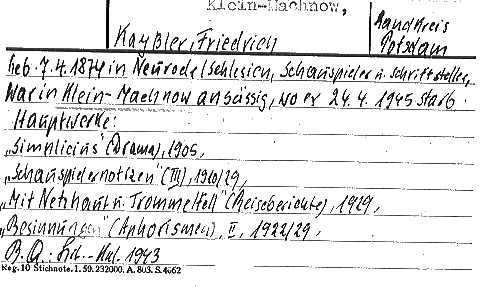 Klein-Machnow,
Landkreis
Potsdam
Kayßler, Friedrich
Geb. 7.4.1874 in Neurode/Schlesien, Schauspieler u. Schriftsteller,
War in Klein-Machnow ansässig, wo er 24.4.1945 starb.
Hauptwerke:
„Simplicius" (Drama), 1905,
„Schauspielernotizen" (III), 1910/29,
„Mit Netzhaut u. Trommelfell" (Reiseberichte), 1929,
„Besinnungen" (Aphorismen), II, 1922/29,
B.Q.: Lit.-Kal. 1943
Reg. 10 Stichnote. 1. 50. 232000. A. 803. S. 4662